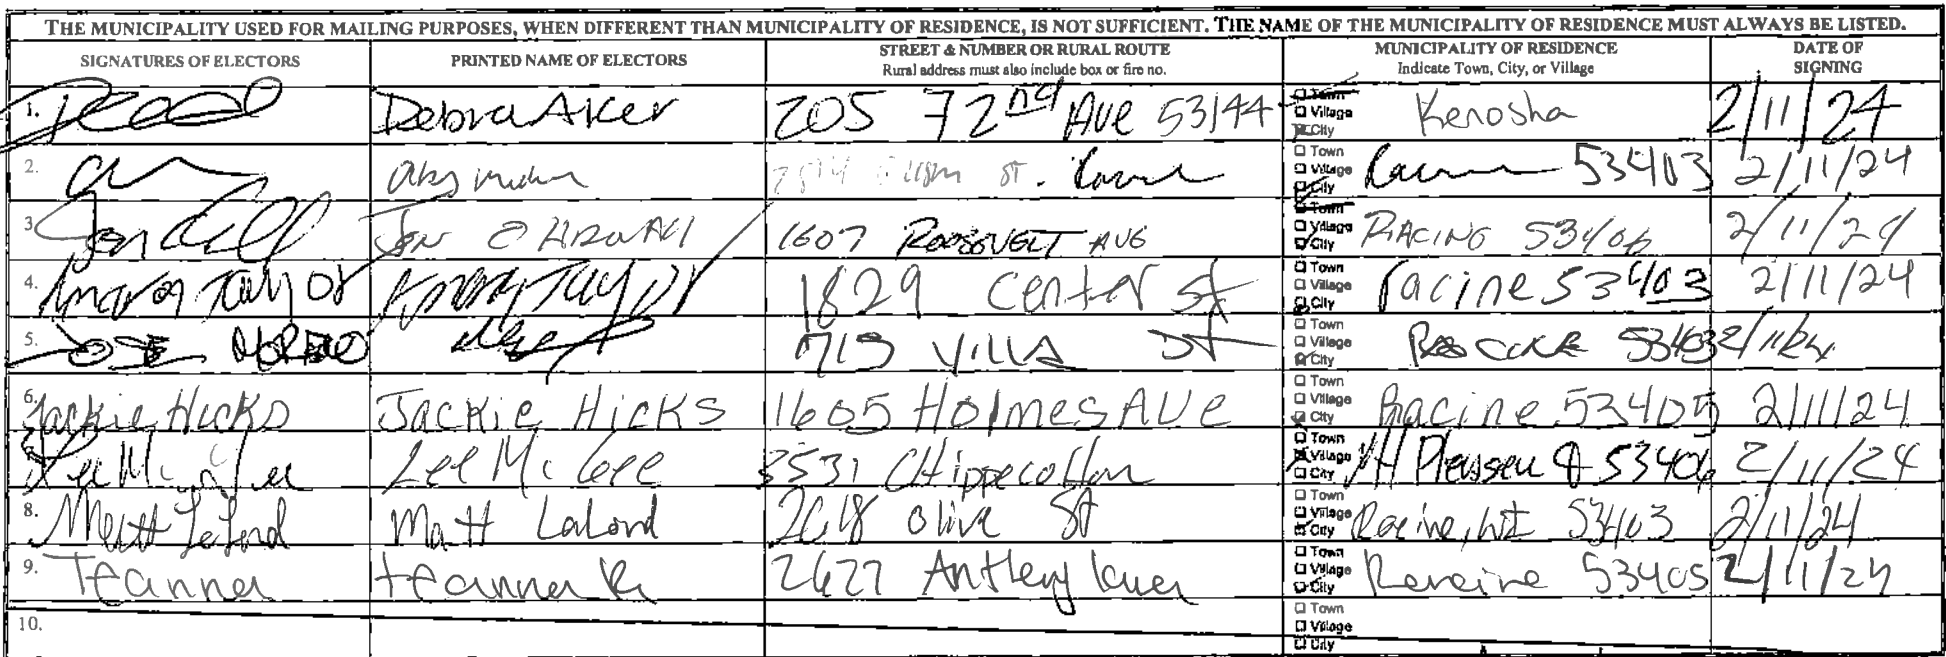 THE MUNICIPALITY USED FOR MAILING PURPOSES, WHEN DIFFERENT THAN MUNICIPALITY OF RESIDENCE, IS NOT SUFFICIENT. THE NAME OF THE MUNICIPALITY OF RESIDENCE MUST ALWAYS BE LISTED.
SIGNATURES OF ELECTORS PRINTED NAME OF ELECTORS STREET & NUMBER OR RURAL ROUTE MUNICIPALITY OF RESIDENCE DATE OF
Rural address must also include box or fire no. Indicate Town, City, or Village SIGNING
1. Debra Aker 205 72nd Ave 53144 Town Village City Kenosha 2/11/24
2. St. Town Village City 53403 2/11/24
3 Jon 1607 ROOSEVELT AVE Town Village City RACINE 53406 2/11/24
4. Taylor Taylor 1829 Center St Town Village City racine 53403 2/11/24
5. MORENO 713 VILLA ST Town Village City 53403 2/11/24
6. Jackie Hicks JACKIE HICKS 1605 Holmes AVE Town Village City Racine 53405 2/11/24
Lee McGee Lee McGee 3531 Town Village City Mt Pleasant 53406 2/11/24
8. Matt LaLond Matt LaLond 2018 Olive St Town Village City Racine, WI 53403 2/11/24
9. Teanna teanna R 2627 Town Village City 53405 2/11/24
10. Town Village City